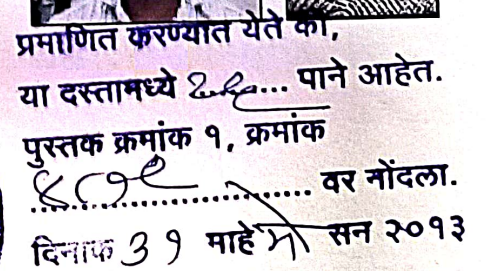 प्रमाणित करण्यात येते की,
या दस्तामध्ये ... पाने आहेत.
पुस्तक क्रमांक १, क्रमांक
.............................. वर नोंदला.
दिनांक 31 माहे सन २०१३